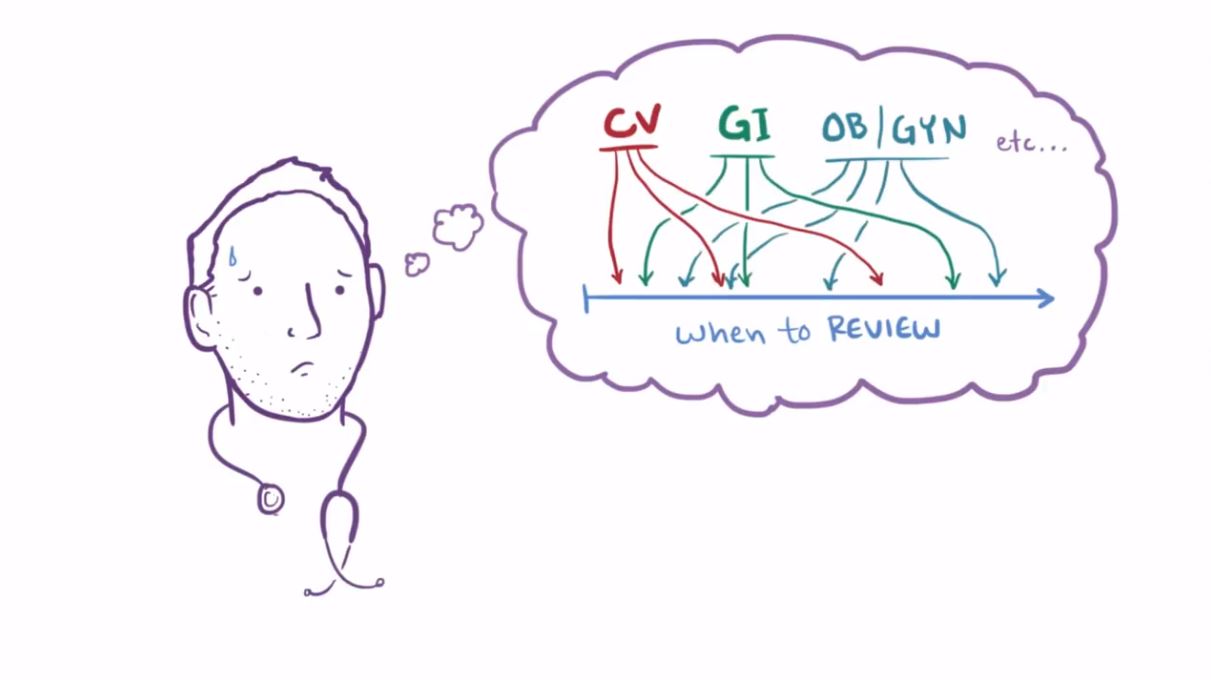 CV GI OB/GYN etc...
when to REVIEW